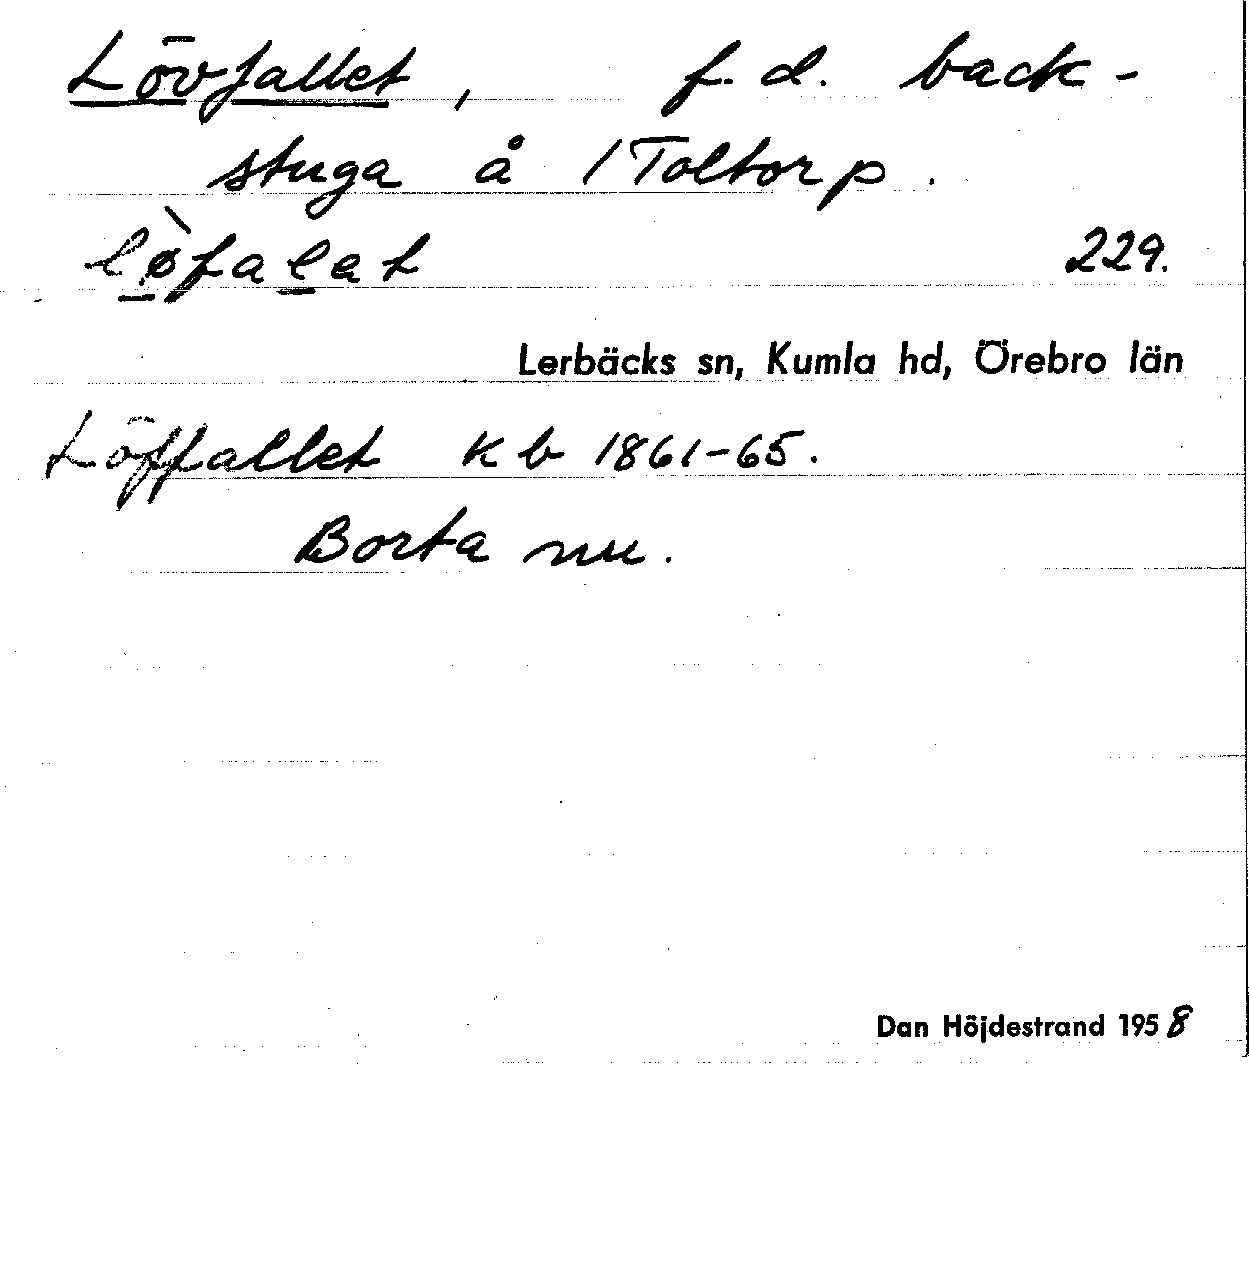 Lövfallet, f. d. back-
stuga å 1 Toltorp.
lø̀falat 229.
Lerbäcks sn, Kumla hd, Örebro län
Löffallet kb 1861-65.
Borta nu.
Dan Höjdestrand 1958